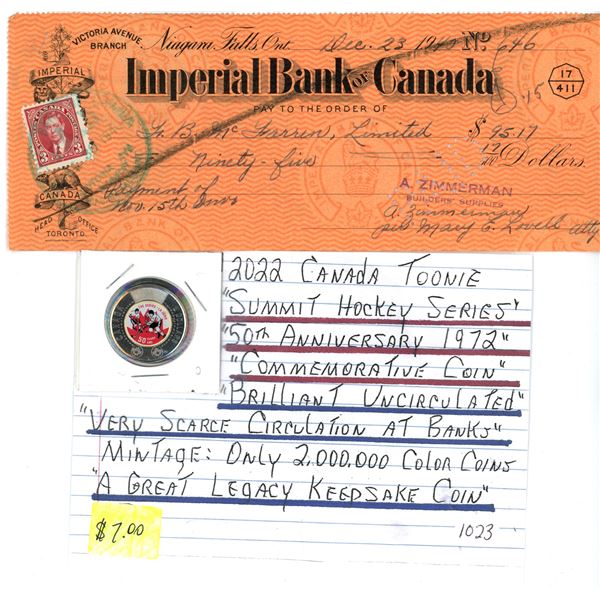 VICTORIA AVENUE
BRANCH
Niagara Falls, Ont. Dec. 23 19 No 646
IMPERIAL
Imperial Bank of Canada
17
411
PAY TO THE ORDER OF 15
3 3
B. Mc Farren, Limited $ 95.17
Ninety-five 17/100 Dollars.
CANADA
HEAD OFFICE
TORONTO.
Payment of
Nov. 15th
A. ZIMMERMAN
BUILDERS' SUPPLIES
A. Zimmerman
per Mary E. Lovell Atty
2022 CANADA TOONIE
"SUMMIT HOCKEY SERIES"
"50TH ANNIVERSARY 1972"
"COMMEMORATIVE COIN"
"BRILLIANT UNCIRCULATED"
"VERY SCARCE CIRCULATION AT BANKS"
MINTAGE: ONLY 2,000.000 COLOR COINS
"A GREAT LEGACY KEEPSAKE COIN"
$7.00
1023